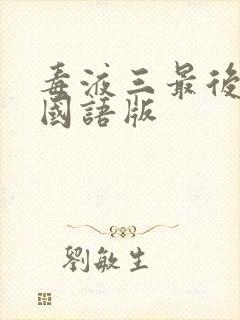 毒液三最後
國語版
劉敏生